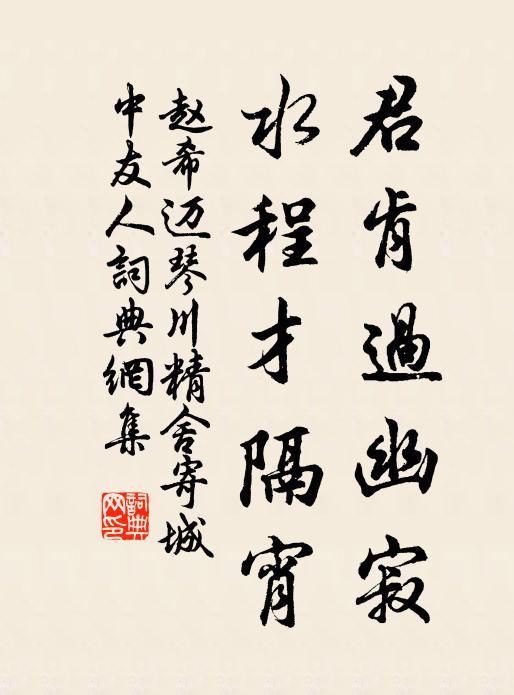 君肯過幽寂
水程才隔宵
赵希迈琴川精舍寄城
中友人詞典網集
詞典网印